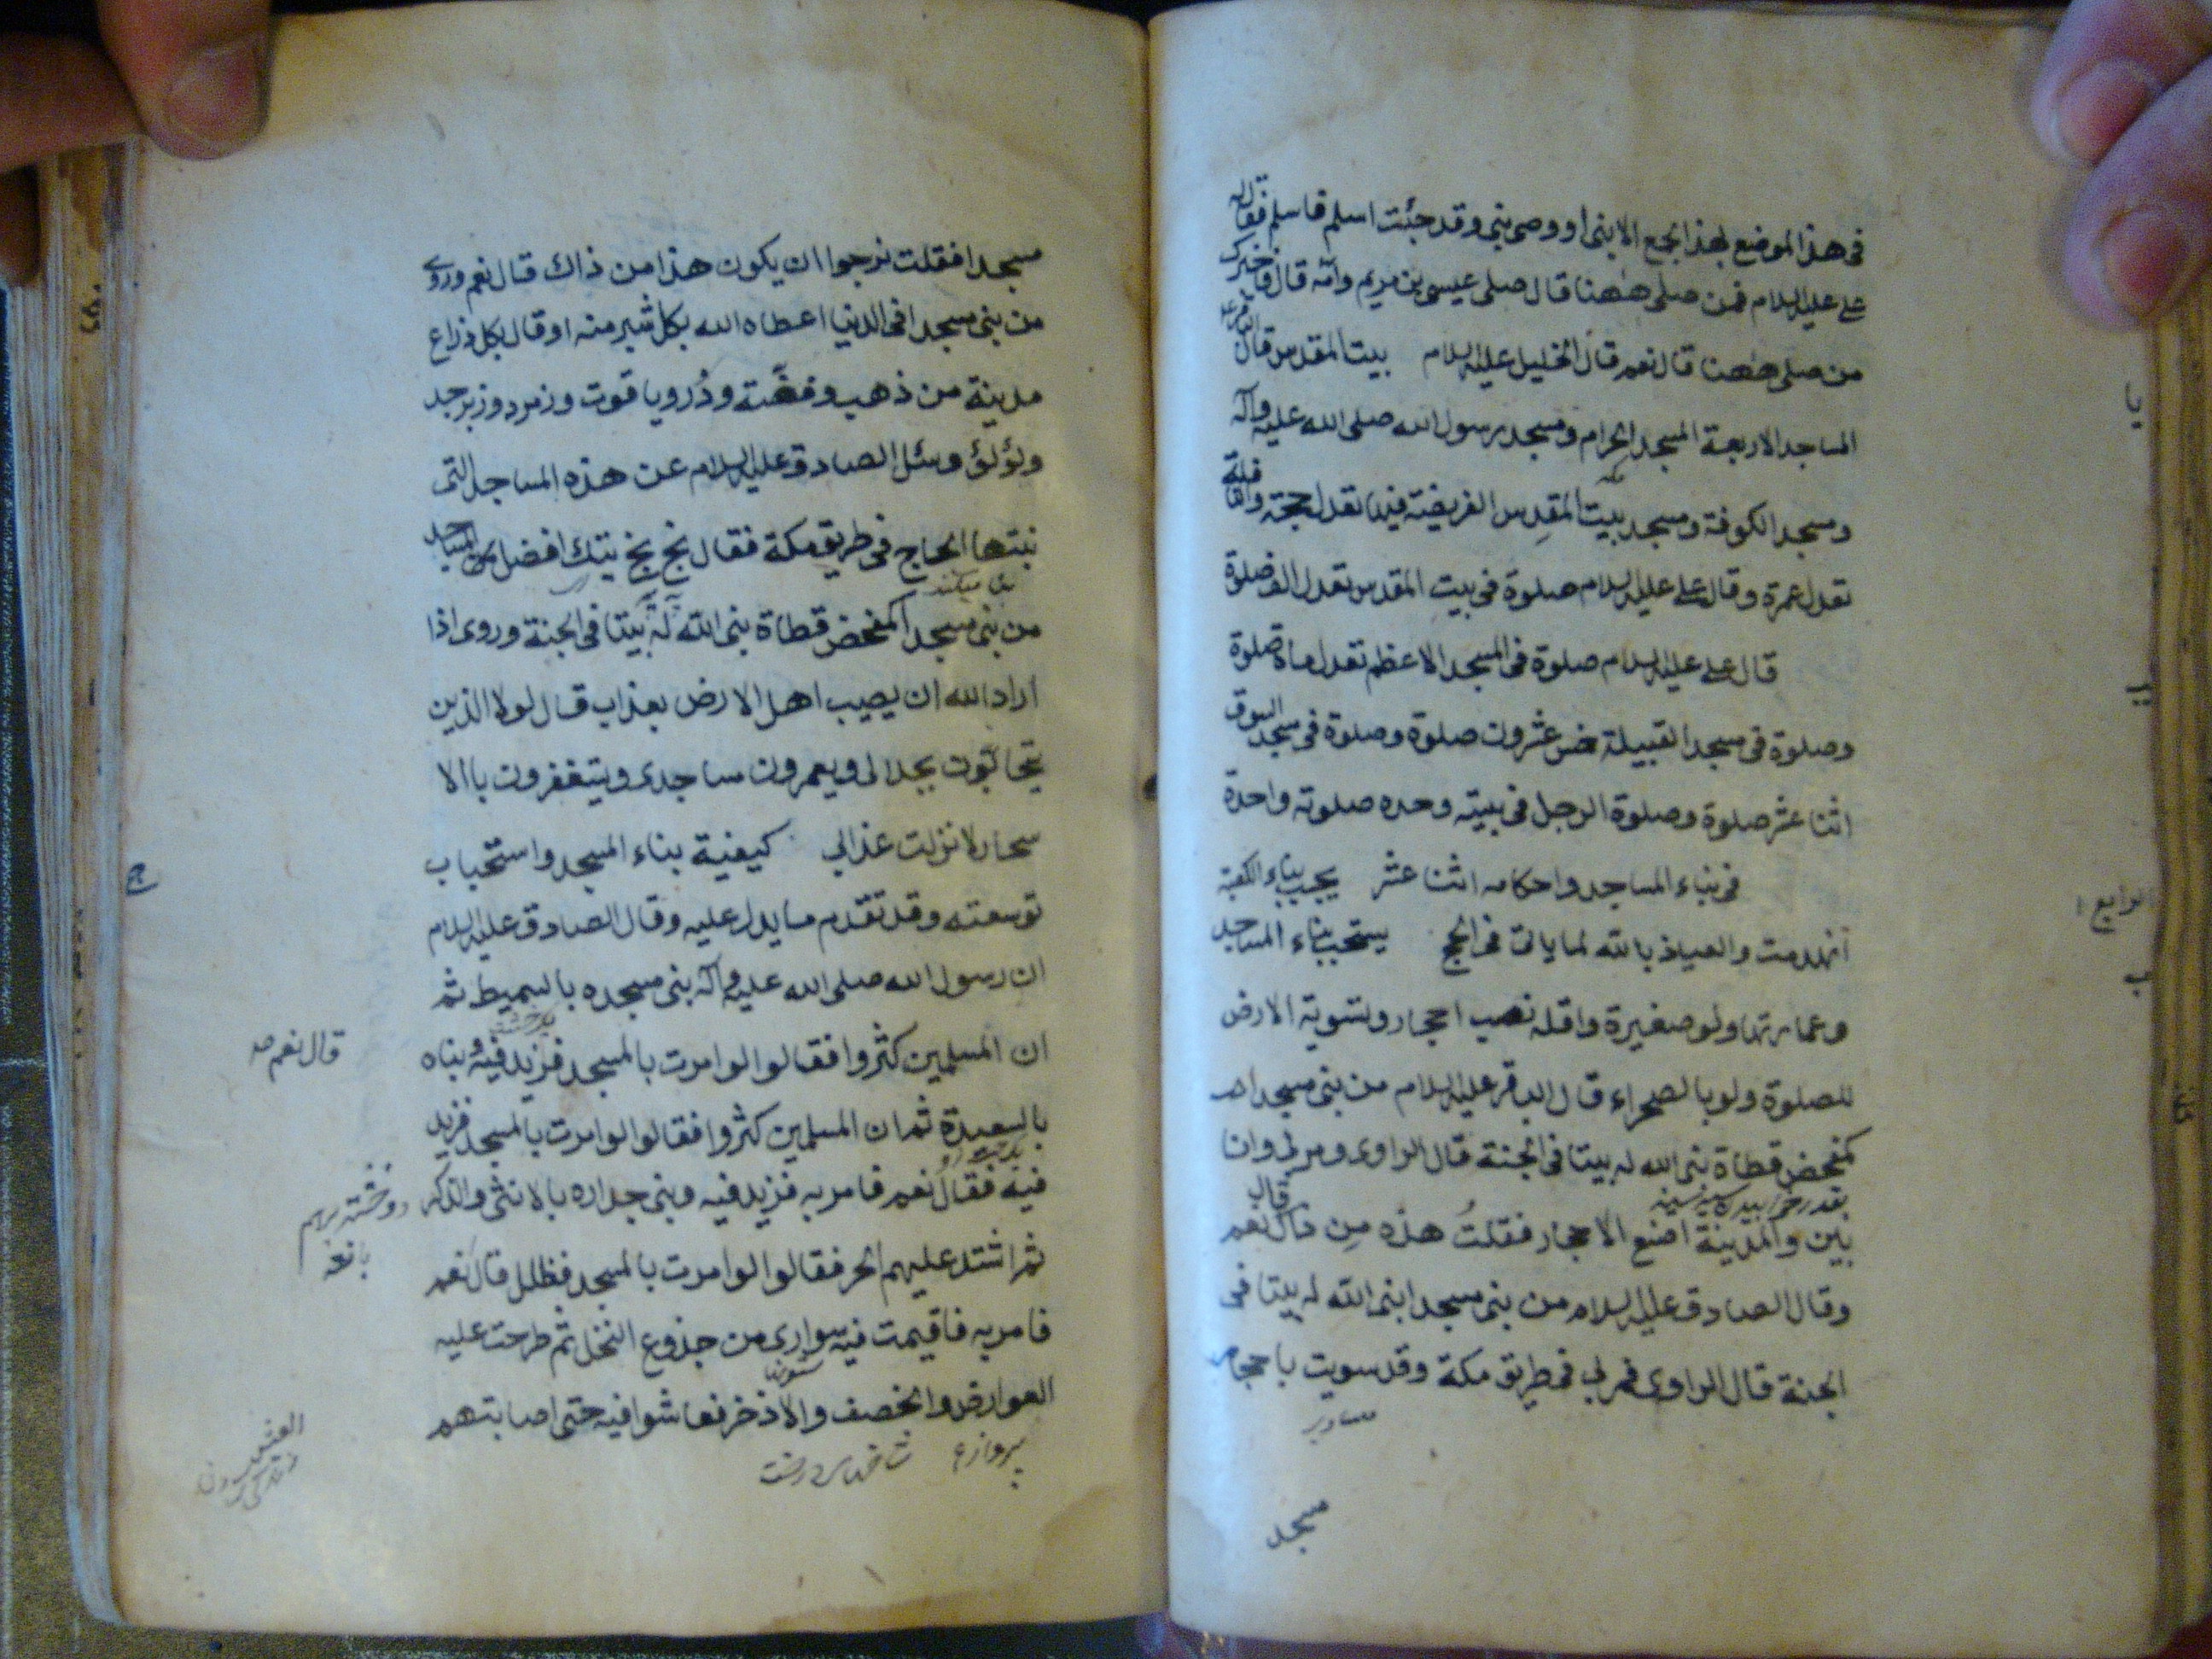 في هذا الموضع بهذا الجمع الا بنى او وصي بنى وقد جئت اسلم فاسلم فقال له
علي عليه السلام فمن صلى ههنا قال صلى عيسى بن مريم وامه قال واخبرك
من صلى ههنا قال نعم قال الخليل عليه السلام بيت المقدس قال
المساجد الاربعة المسجد الحرام ومسجد رسول الله صلى الله عليه وآله
ومسجد الكوفة ومسجد بيت المقدس الفريضة فيها تعدل حجة والنافلة
تعدل عمرة وقال علي عليه السلام صلوة في بيت المقدس تعدل الف صلوة
قال علي عليه السلام صلوة في المسجد الاعظم تعدل ماة صلوة
وصلوة في مسجد القبيلة خمس عشرون صلوة وصلوة في مسجد السوق
اثنا عشر صلوة وصلوة الرجل في بيته وحده صلوته واحدة
في بناء المساجد واحكامه اثنا عشر يجب بناء الكعبة
الرابع
انهدمت والعياذ بالله لما ياتى فى الحج يستحب بناء المساجد
وعمارتها ولو صغيرة واقله نصب احجار وتسوية الارض
للصلوة ولو بالصحراء قال الباقر عليه السلام من بنى مسجدا
كمفحص قطاة بنى الله له بيتا فى الجنة قال الراوى ومر بى وانا
بين والمدينة اضع الاحجار فقلت هذه من ذاك قال نعم
وقال الصادق عليه السلام من بنى مسجدا بنى الله له بيتا فى
الجنة قال الراوى فمر بى فى طريق مكة وقد سويت باحجار
مسجد
مسجدا فقلت نرجوا ان يكون هذا من ذاك قال نعم وروى
من بنى مسجدا فى الدنيا اعطاه الله بكل شبر منه او قال بكل ذراع
مدينة من ذهب وفضة ودر وياقوت وزمرد وزبرجد
ولؤلؤ وسئل الصادق عليه السلام عن هذه المساجد التى
بنتها الحاج فى طريق مكة فقال بخ بخ تيك افضل المساجد
من بنى مسجدا كمفحص قطاة بنى الله له بيتا فى الجنة وروى اذا
اراد الله ان يصيب اهل الارض بعذاب قال لولا الذين
يتحابون بجدالى ويعمرون مساجدى ويستغفرون بالا
سحار لانزلت عذابي كيفية بناء المسجد واستحباب
توسعته وقد تقدم ما يدل عليه وقال الصادق عليه السلام
ان رسول الله صلى الله عليه وآله بنى مسجده بالسميط ثم
ان المسلمين كثروا فقالوا لو امرت بالمسجد فزيد فيه وبناه
قال نعم صه
بالسعيدة ثم ان المسلمين كثروا فقالوا لو امرت بالمسجد فزيد
فيه فقال نعم فامر به فزيد فيه وبنى جداره بالانثى والذكر
ثم اشتد عليهم الحر فقالوا لو امرت بالمسجد فظلل قال نعم
فامر به فاقيمت فيه سوارى من جذوع النخل ثم طرحت عليه
العوارض والخصف والاذخر فعاشوا فيه حتى اصابتهم